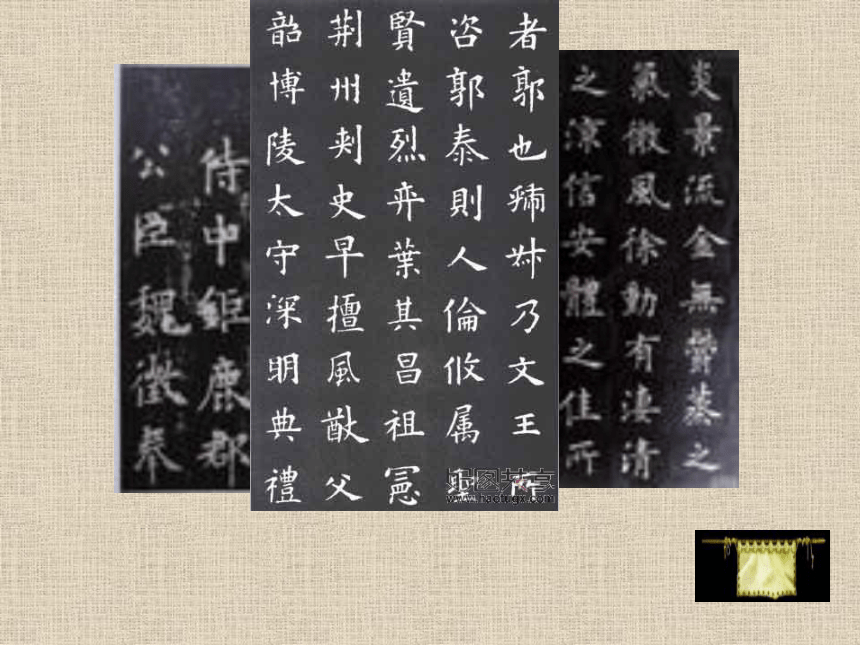 炎景流金無鬱蒸之
氣微風徐動有淒清
之涼信安體之佳所
者郭也虢叔乃文王所
咨郭泰則人倫攸属聖
賢遺烈弈葉其昌祖憲
荆州刾史早擅風猷父
韶博陵太守深明典禮
侍中鉅鹿郡
公臣魏徵奉